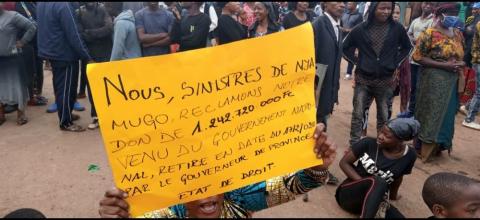 NOUS, SINISTRES DE NYA
MUGO, RECLAMONS NOTRE
DON DE 1.242.720 000 FC
VENU DU GOUVERNEMENT NATIO
NAL, RETIRE EN DATE DU
PAR LE GOUVERNEUR DE PROVINCE
ETAT DE DROIT